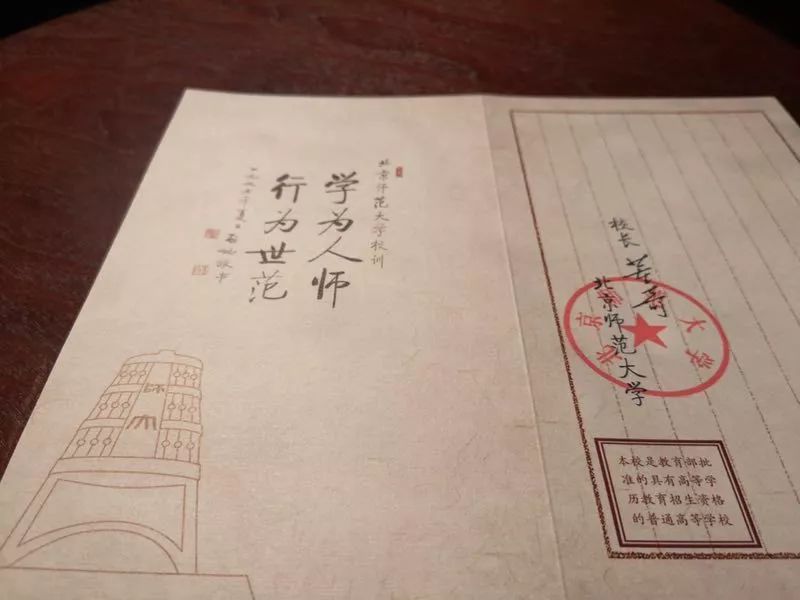 北京师范大学校训
学为人师
行为世范
一九九七年夏日 启功敬书
师大
校长 董奇
北京师范大学
北京师范大学
本校是教育部批
准的具有高等学
历教育招生资格
的普通高等学校